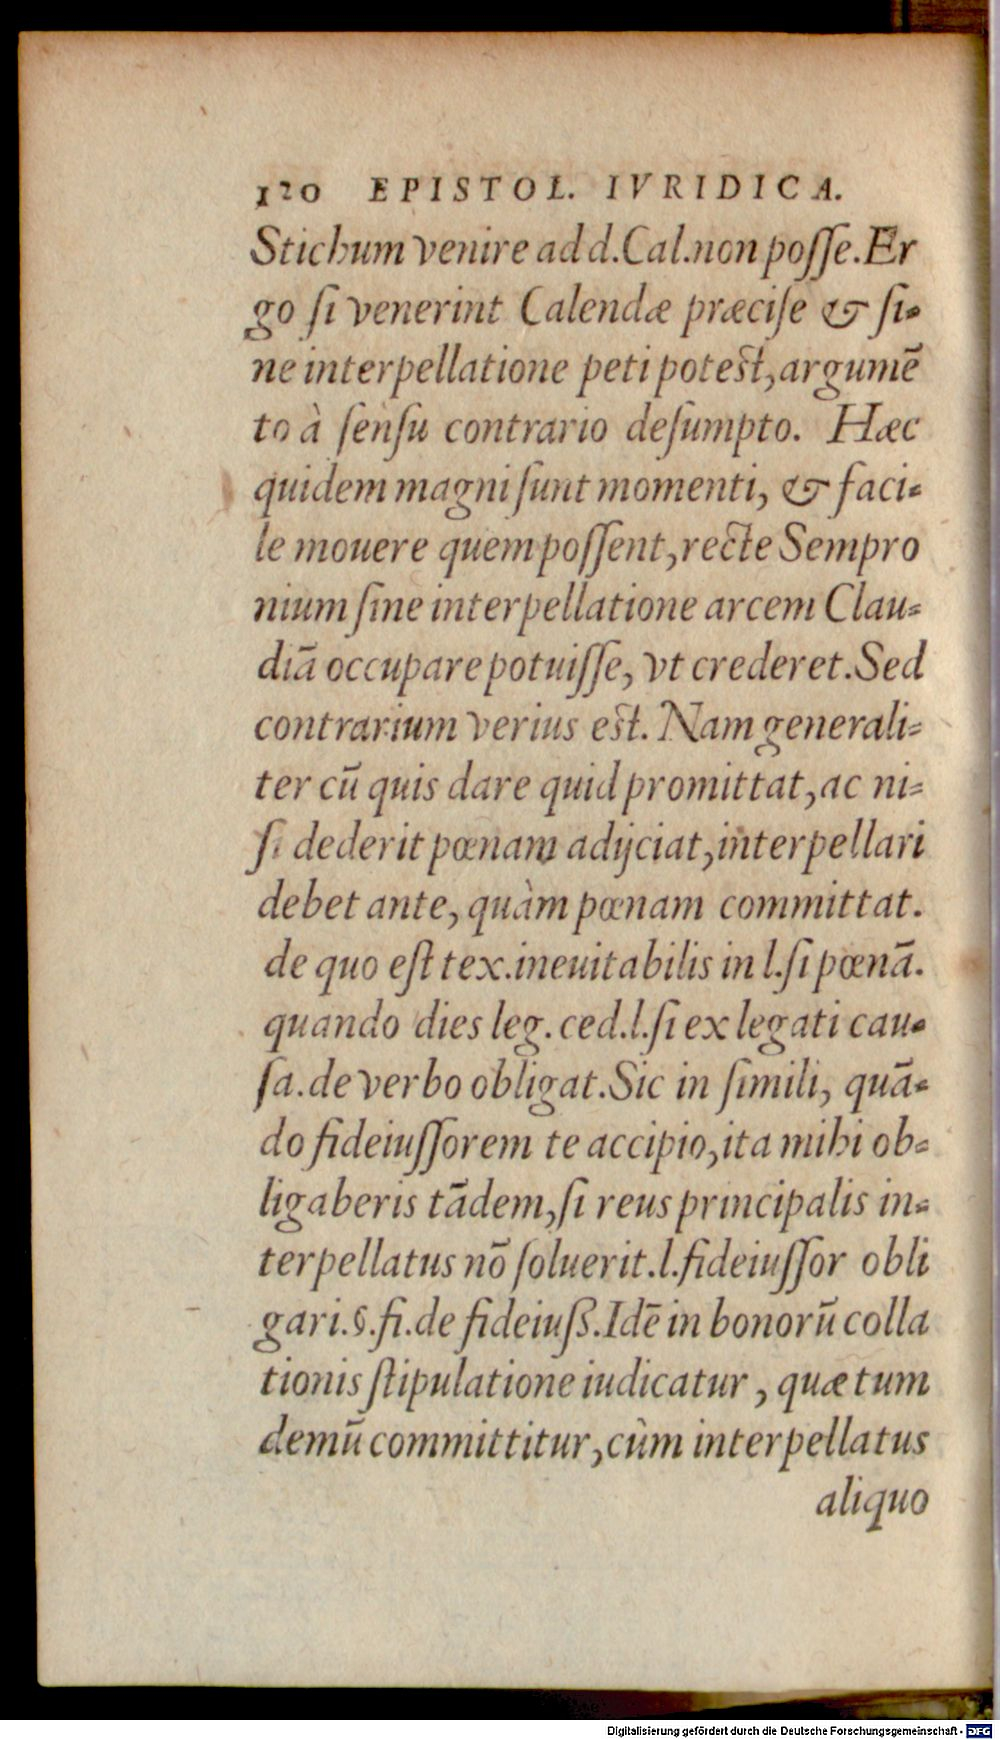 120 EPISTOL. IVRIDICA.
Stichum venire ad d.Cal.non poſſe.Er
go ſi venerint Calendæ præciſe & ſi-
ne interpellatione peti poteſt,argumē
to à ſenſu contrario deſumpto. Hæc
quidem magni ſunt momenti, & faci-
le mouere quem poſſent,recte Sempro
nium ſine interpellatione arcem Clau-
diā occupare potuiſſe, vt crederet.Sed
contrarium verius eſt. Nam generali-
ter cū quis dare quid promittat,ac ni-
ſi dederit pœnam adijciat,interpellari
debet ante, quàm pœnam committat.
de quo eſt tex.ineuitabilis in l.ſi pœnā.
quando dies leg. ced.l.ſi ex legati cau-
ſa.de verbo obligat.Sic in ſimili, quā-
do fideiuſſorem te accipio,ita mihi ob-
ligaberis tādem,ſi reus principalis in-
terpellatus nō ſoluerit.l.fideiuſſor obli
gari.§.fi.de fideiuß.Idē in bonorū colla
tionis ſtipulatione iudicatur , quæ tum
demū committitur,cùm interpellatus
aliquo
Digitalisierung gefördert durch die Deutsche Forschungsgemeinschaft - DFG